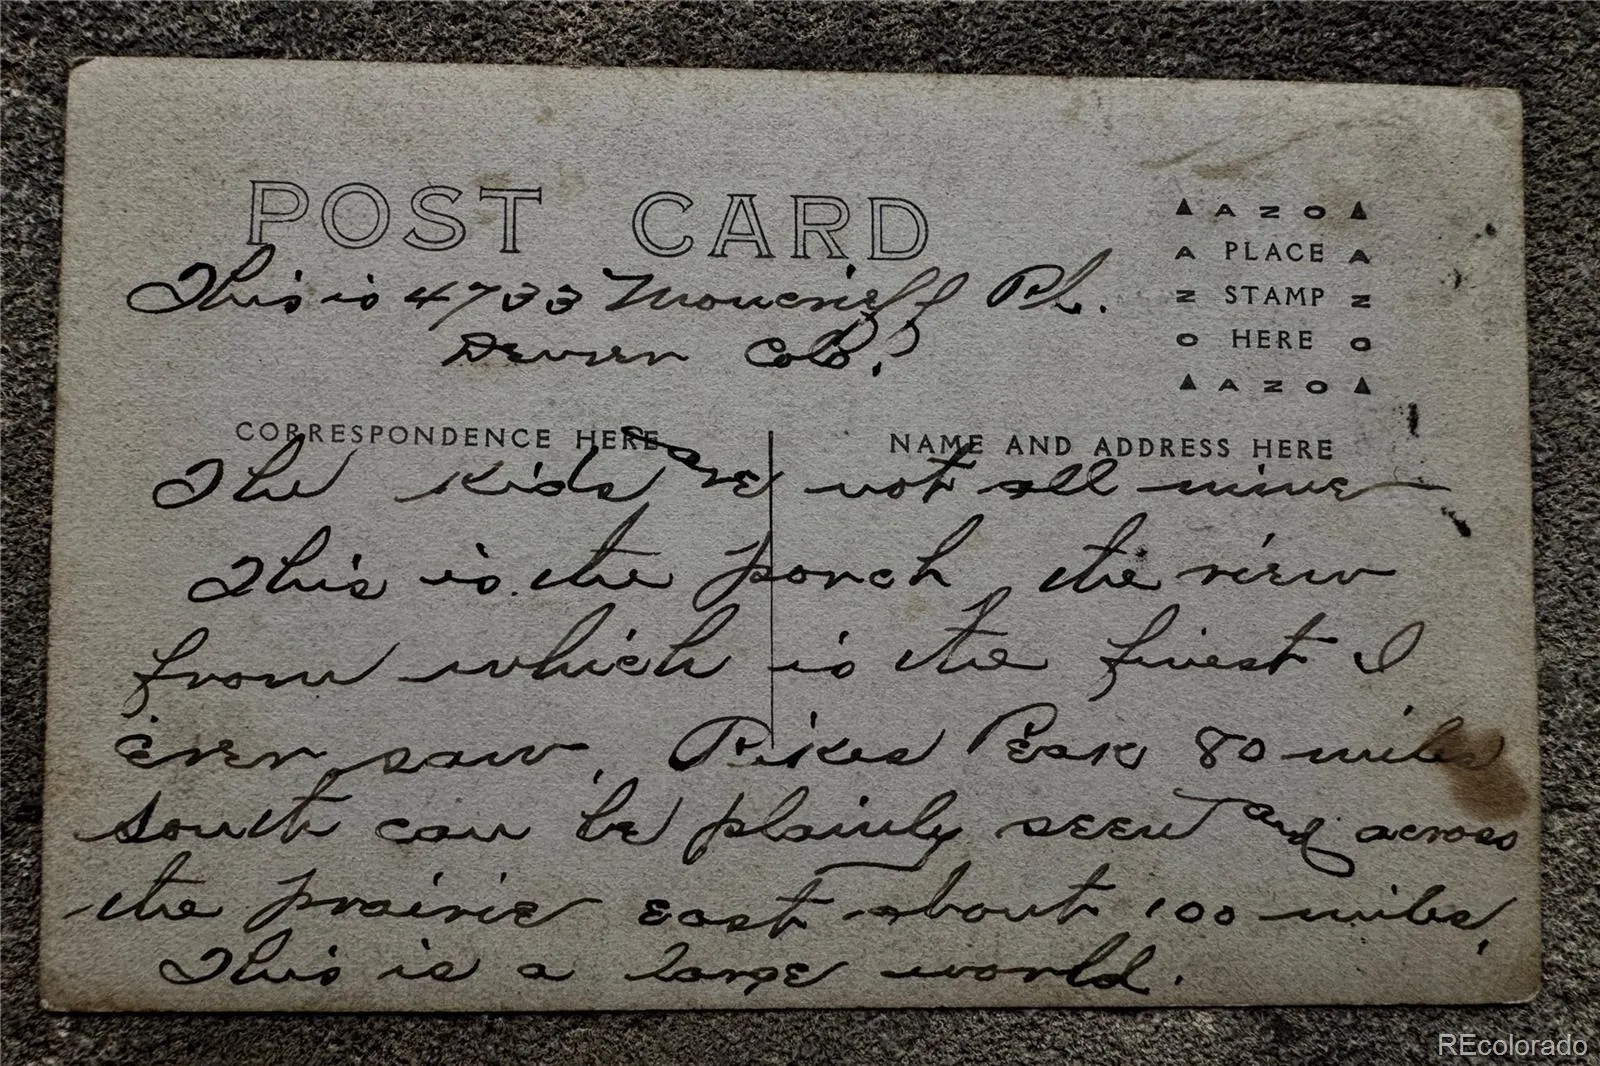 POST CARD
This is 4733 Moncrieff Pl.
Denver Colo.
▲ A Z O ▲
A PLACE A
Z STAMP Z
O HERE O
▲ A Z O ▲
CORRESPONDENCE HERE
NAME AND ADDRESS HERE
The kids are not all mine
This is the porch, the view
from which is the finest I
ever saw. Pikes Peak 80 miles
south can be plainly seen and across
the prairie east about 100 miles.
This is a large world.
REcolorado